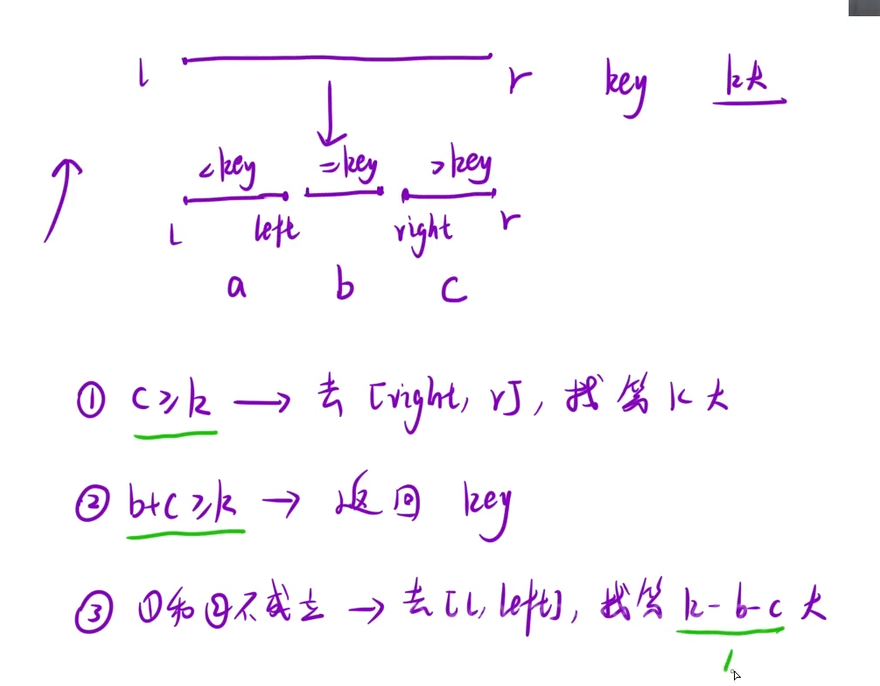 l r key k大
<key =key >key
l left right r
a b c
① c≥k → 去 [right, r], 找第 k 大
② b+c≥k → 返回 key
③ ①和②不成立 → 去[l, left], 找第 k-b-c 大